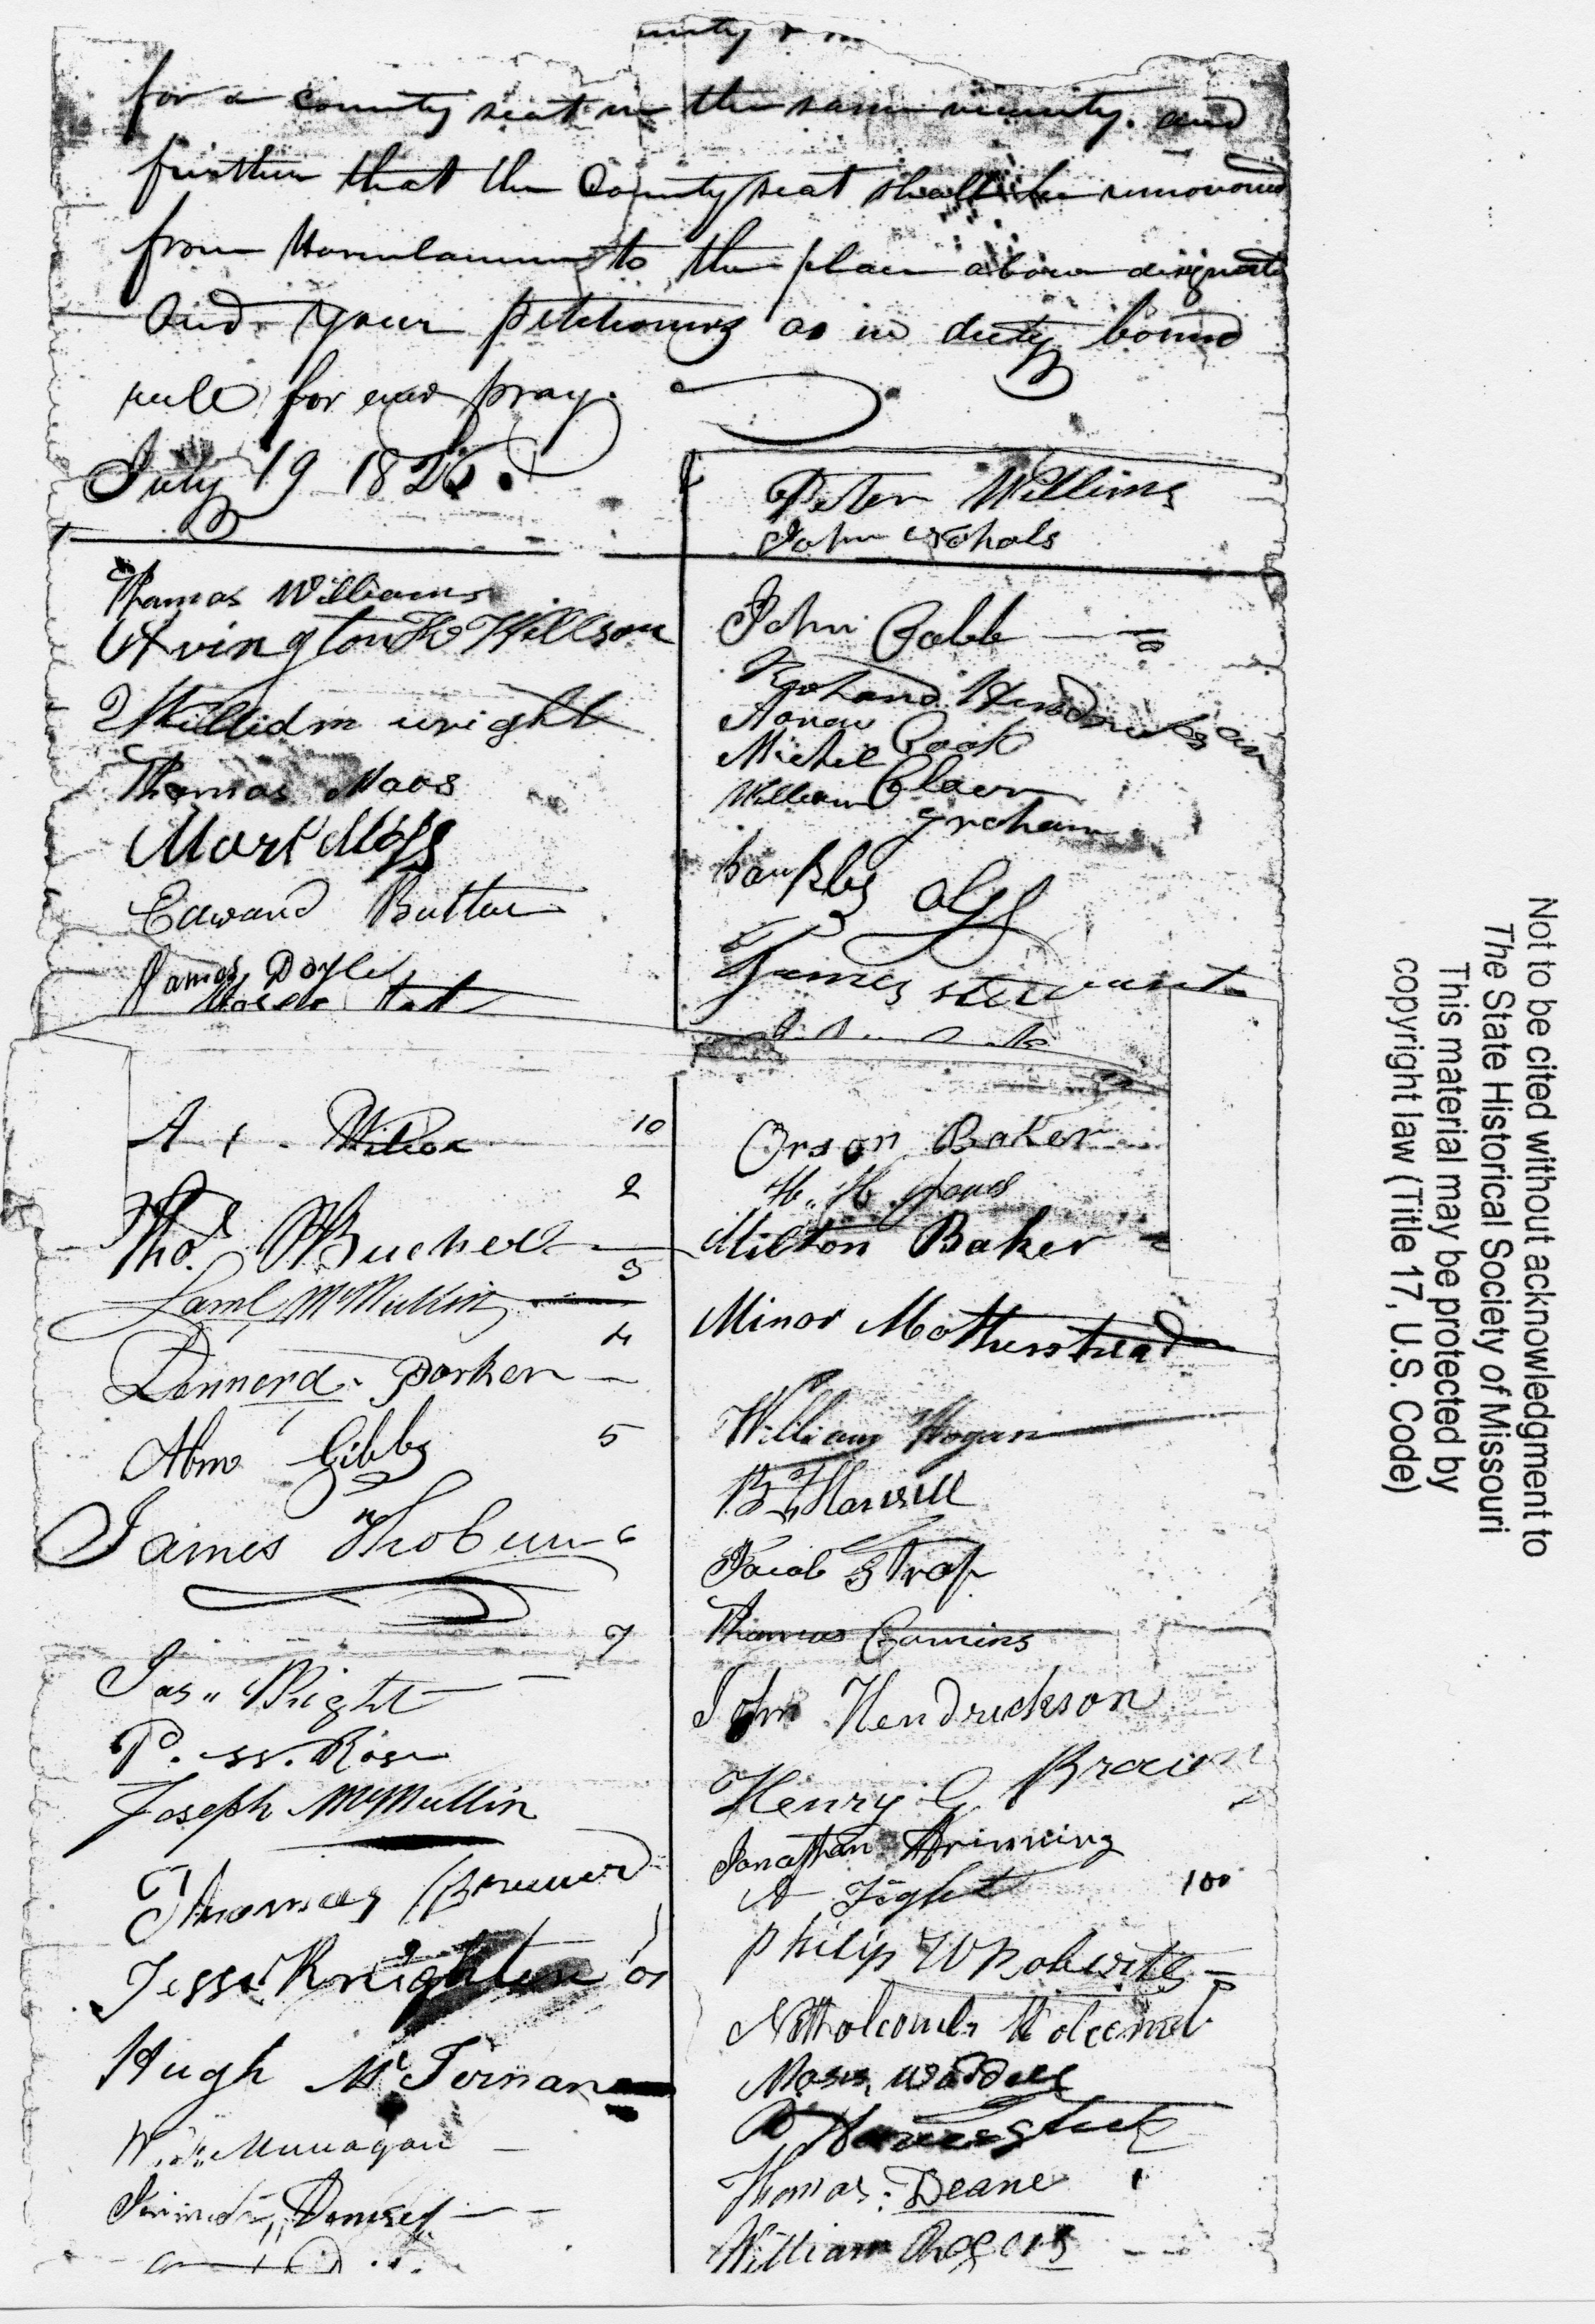 for a county seat in the same vicinity. and
further that the County seat shall be removed
from to the place above designate
And your petitioners as in duty bound
will for ever pray.
July 19 1826.
Peter Willims
John
Thomas Williams
Arvington Willson
William wright
Thomas Maos
Mark Moss
Edward Butler
James Doyle
John Cobb
Aaron Cook
Michel
William groham
James stewart
A Wilson 10
Thos. 2
Saml McMullin 3
Lennerd. Parker 4
Abm Gibbs 5
James Thoburn 6
7
Jas" Wright
P. W. Rose
Joseph McMullin
Thomas
Jesse Knighten
Hugh McTernan
Orson Baker
H. H. Jones
Milton Baker
Minor Mothershead
William Hogan
B. Harvell
Jacob Strop
Thomas Comins
John Hendrickson
Henry G Brown
Jonathan
A Fight 100
Philip W Roberts
Holcomb
Moses Waddell
Thomas: Deane
William Rogers
Not to be cited without acknowledgment to
The State Historical Society of Missouri
This material may be protected by
copyright law (Title 17, U.S. Code)